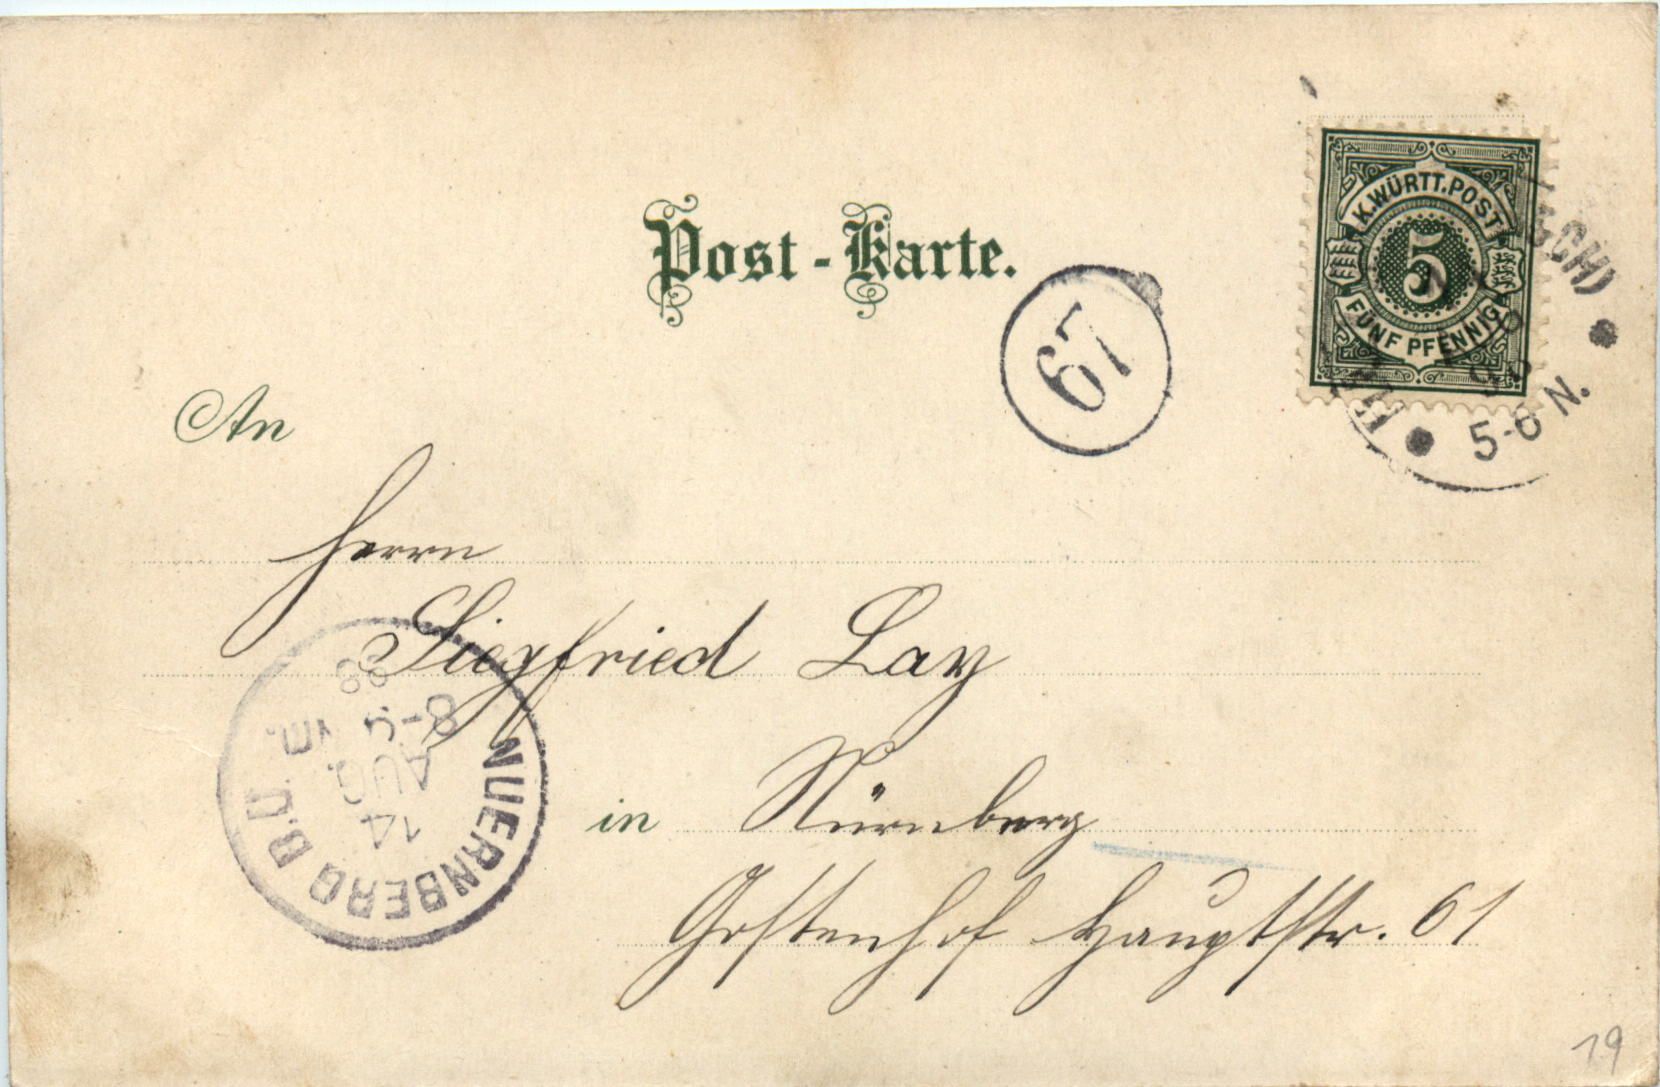 Post-Karte.
K.WÜRTT.POST
5
FÜNF PFENNIG
67
5-6 N.
An
Herrn
Siegfried Lay
in Nürnberg
Gostenhof Hauptstr. 61
NUERNBERG B.O.
14
AUG.
8-9 Vm.
98
19